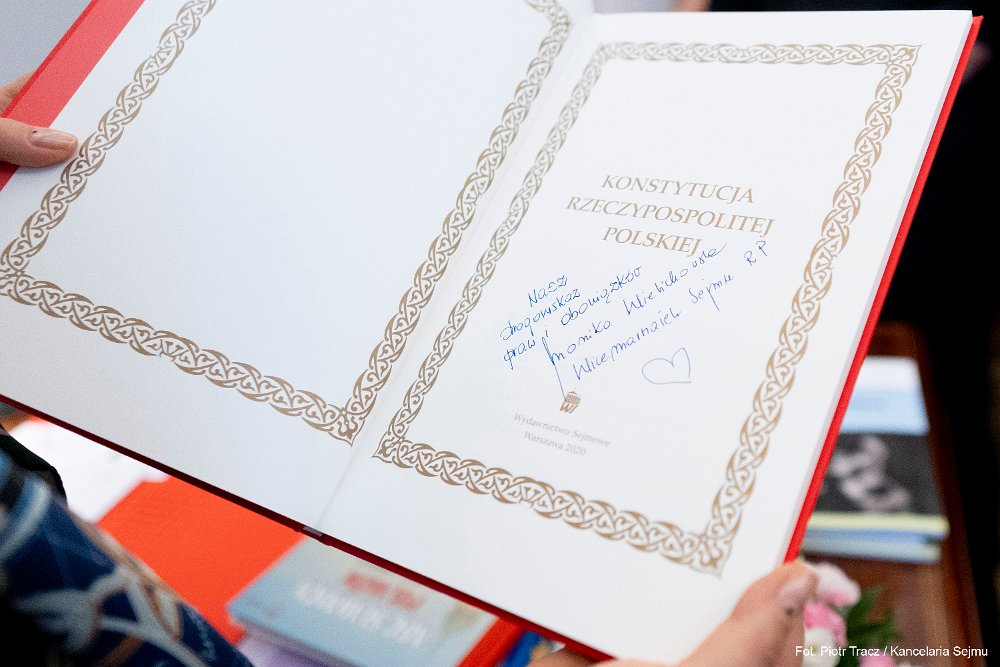 KONSTYTUCJA
RZECZYPOSPOLITEJ
POLSKIEJ
Nasz
drogowskaz
praw i obowiązków
Monika Wielichowska
Wicemarszałek Sejmu RP
Wydawnictwo Sejmowe
Warszawa 2020
Fot. Piotr Tracz / Kancelaria Sejmu